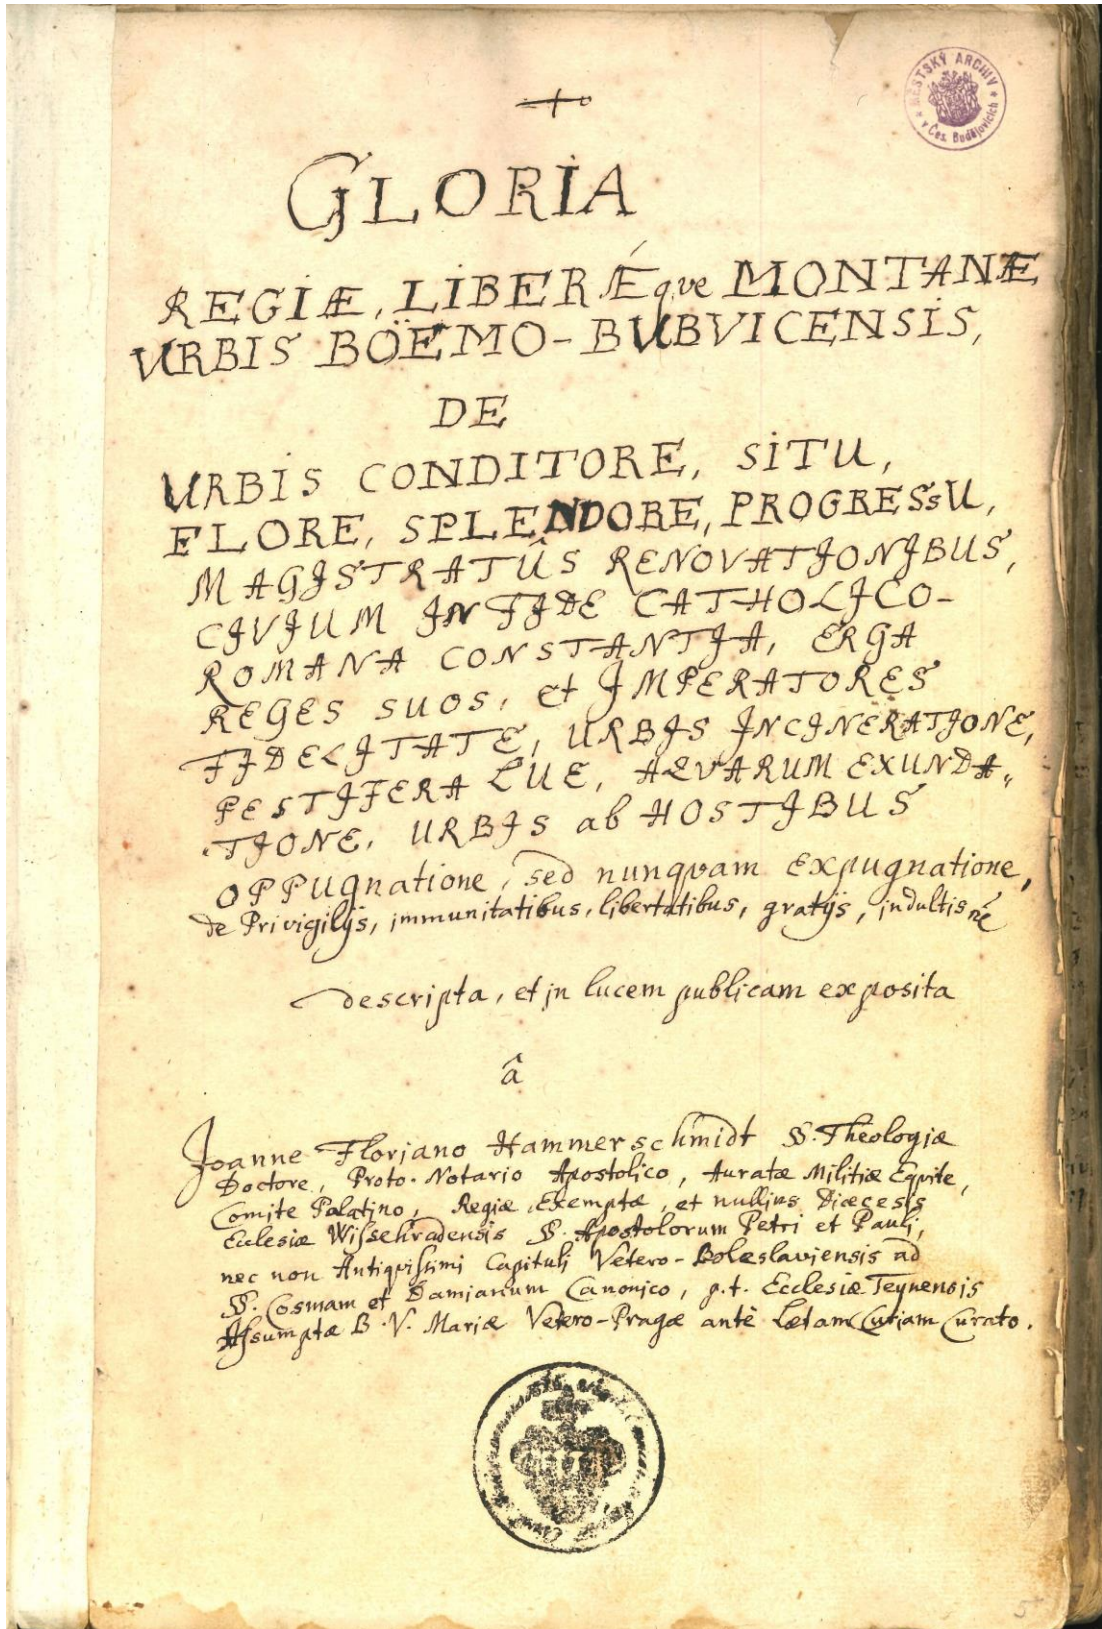 MĚSTSKÝ ARCHIV
v Čes. Budějovicích
GLORIA
REGIÆ, LIBERÆque MONTANÆ
URBIS BOËMO-BUBVICENSIS,
DE
URBIS CONDITORE, SITU,
FLORE, SPLENDORE, PROGRESsU,
MAGISTRATÛS RENOVATIONIBUS,
CIVIUM IN FIDE CATHOLICO-
ROMANA CONSTANTIA, ERGA
REGES SUOS, et IMPERATORES
FIDELITATE, URBIS INCINERATIONE,
PESTIFERA LUE, AQVARUM EXUNDA„
TIONE, URBIS ab HOSTIBUS
OPPUgnatione, sed nunqvam Expugnatione,
de Privigilijs, immunitatibus, libertatibus, gratijs, indultis
descripta, et in lucem publicam exposita
â
Joanne Floriano Hammerschmidt SS. Theologiæ
Doctore, Proto-Notario Apostolico, Auratæ Militiæ Eqvite,
Comite Palatino, Regiæ, Exemptæ, et nullius Diæcesis
Ecclesiæ Wissehradensis SS. Apostolorum Petri et Pauli,
nec non Antiqvissimi Capituli Vetero-Boleslaviensis ad
SS. Cosmam et Damianum Canonico, p.t. Ecclesiæ Teynensis
Assumptæ B.V. Mariæ Vetero-Pragæ antè Lætam Curiam Curato.